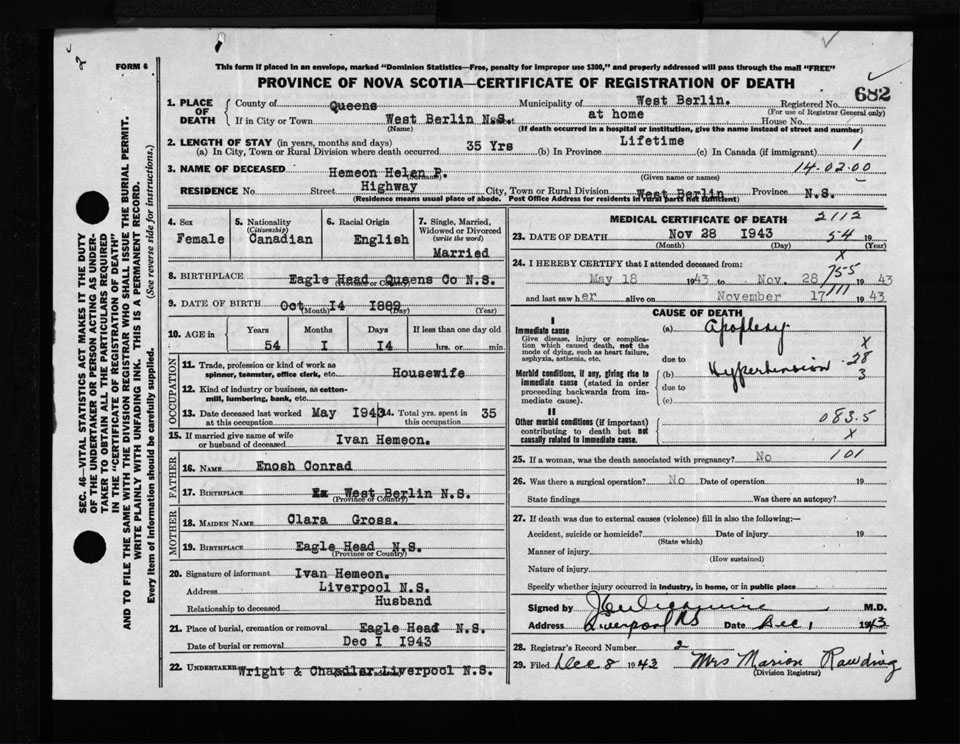 FORM 6
This form if placed in an envelope, marked "Dominion Statistics—Free, penalty for improper use $300," and properly addressed will pass through the mail "FREE"
PROVINCE OF NOVA SCOTIA—CERTIFICATE OF REGISTRATION OF DEATH
682
1. PLACE OF DEATH
County of Queens Municipality of West Berlin. Registered No.
(For use of Registrar General only)
If in City or Town West Berlin N.S. at home House No.
(Name) (If death occurred in a hospital or institution, give the name instead of street and number)
2. LENGTH OF STAY (in years, months and days)
(a) In City, Town or Rural Division where death occurred 35 Yrs (b) In Province Lifetime (c) In Canada (if immigrant) 1
3. NAME OF DECEASED Hemeon Helen P. 14.02.00
(Surname) (Given name or names)
RESIDENCE No. Street Highway City, Town or Rural Division West Berlin Province N.S.
(Residence means usual place of abode. Post Office Address for residents in rural parts not sufficient)
4. Sex Female
5. Nationality (Citizenship) Canadian
6. Racial Origin English
7. Single, Married, Widowed or Divorced (write the word) Married
8. BIRTHPLACE Eagle Head Queens Co N.S.
(Province or Country)
9. DATE OF BIRTH Oct I4 I889
(Month) (Day) (Year)
10. AGE in Years 54 Months I Days I4 If less than one day old hrs. or min.
OCCUPATION
11. Trade, profession or kind of work as spinner, teamster, office clerk, etc. Housewife
12. Kind of industry or business, as cotton-mill, lumbering, bank, etc.
13. Date deceased last worked at this occupation May I943
14. Total yrs. spent in this occupation 35
15. If married give name of wife or husband of deceased Ivan Hemeon.
FATHER
16. NAME Enosh Conrad
17. BIRTHPLACE West Berlin N.S.
(Province or Country)
MOTHER
18. MAIDEN NAME Clara Gross.
19. BIRTHPLACE Eagle Head N.S.
(Province or Country)
20. Signature of informant Ivan Hemeon.
Address Liverpool N.S.
Relationship to deceased Husband
21. Place of burial, cremation or removal Eagle Head N.S.
Date of burial or removal Dec I 1943
22. UNDERTAKER Wright & Chandler Liverpool N.S.
MEDICAL CERTIFICATE OF DEATH 2112
23. DATE OF DEATH Nov 28 I943 54 19
(Month) (Day) (Year)
X
24. I HEREBY CERTIFY that I attended deceased from:
May 18 1943 to Nov. 28 1943
755
and last saw her alive on November 17 1943
CAUSE OF DEATH
I
Immediate cause
Give disease, injury or complication which caused death, not the mode of dying, such as heart failure, asphyxia, asthenia, etc.
(a) Apoplexy
X
due to
Morbid conditions, if any, giving rise to immediate cause (stated in order proceeding backwards from immediate cause).
(b) Hypertension 28
3
due to
(c)
II
Other morbid conditions (if important) contributing to death but not causally related to immediate cause.
083.5
X
25. If a woman, was the death associated with pregnancy? No 101
26. Was there a surgical operation? No Date of operation 19
State findings Was there an autopsy?
27. If death was due to external causes (violence) fill in also the following:—
Accident, suicide or homicide? Date of injury 19
(State which)
Manner of injury
(How sustained)
Nature of injury
Specify whether injury occurred in industry, in home, or in public place
Signed by M.D.
Address Liverpool NS Date Dec 1 1943
28. Registrar's Record Number 2
29. Filed Dec 8 1943 Mrs Marion Rawding
(Division Registrar)
SEC. 46—VITAL STATISTICS ACT MAKES IT THE DUTY
OF THE UNDERTAKER OR PERSON ACTING AS UNDERTAKER TO OBTAIN ALL THE PARTICULARS REQUIRED
IN THE "CERTIFICATE OF REGISTRATION OF DEATH"
AND TO FILE THE SAME WITH THE DIVISION REGISTRAR WHO SHALL ISSUE THE BURIAL PERMIT.
WRITE PLAINLY WITH UNFADING INK. THIS IS A PERMANENT RECORD.
Every item of information should be carefully supplied. (See reverse side for instructions.)